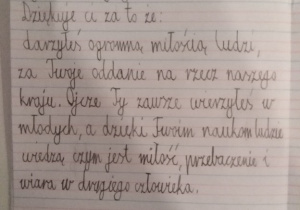 Dziękuje ci za to że:
darzyłeś ogromną miłością ludzi,
za Twoje oddanie na rzecz naszego
kraju. Ojcze Ty zawsze wierzyłeś w
młodych, a dzięki Twoim naukom ludzie
wiedzą czym jest miłość, przebaczenie i
wiara w drugiego człowieka.